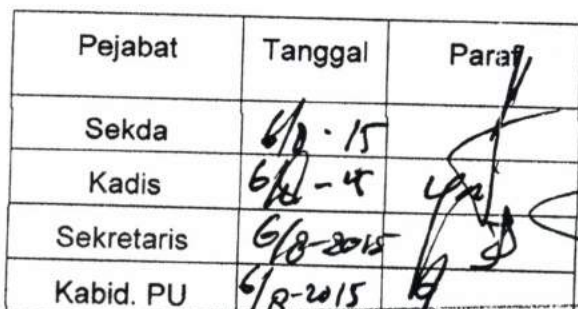 Pejabat Tanggal Paraf
Sekda 6/8 - 15
Kadis
Sekretaris 6/8-2015
Kabid. PU 6/8-2015